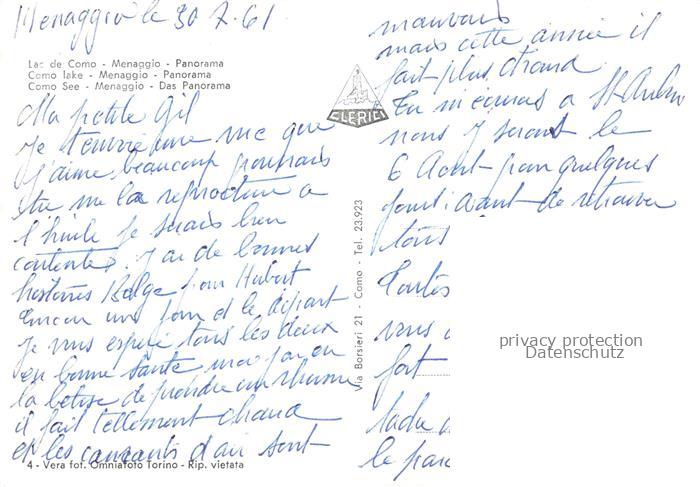 Menaggio le 30.7.61
Lac de Como - Menaggio - Panorama
Como lake - Menaggio - Panorama
Como See - Menaggio - Das Panorama
CLERICI
Ma petite Gil
Je t'envoie une vue que
j'aime beaucoup pourrais
tu me la reproduire a
l'huile je serais bien
contente. J'ai de bonnes
histoires Belge pour Hubert
Encore un jour et le départ
Je vous espère tous les deux
en bonne santé moi j'ai eu
la betise de prendre un rhume
il fait tellement chaud
et les courants d'air sont
4 - Vera fot. Omniafoto Torino - Rip. vietata
Via Borsieri 21 - Como - Tel. 23.923
mauvais
mais cette année il
fait plus chaud
Tu m'écriras a St Aubin
nous y serons le
6 Aout pour quelques
jours avant de retrouver
tous
Toutes
vous
fort
le
privacy protection
Datenschutz